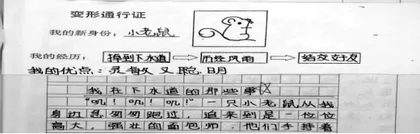 变形通行证
我的新身份：小老鼠
我的经历：掉到下水道 历经风雨 结交好友
我的优点：灵敏又聪明
我在下水道的那些事
"叽！叽！叽！"一只小老鼠从我
身边急匆匆跑过，追来的是一位位
高大，强壮的面包师，他们手持着